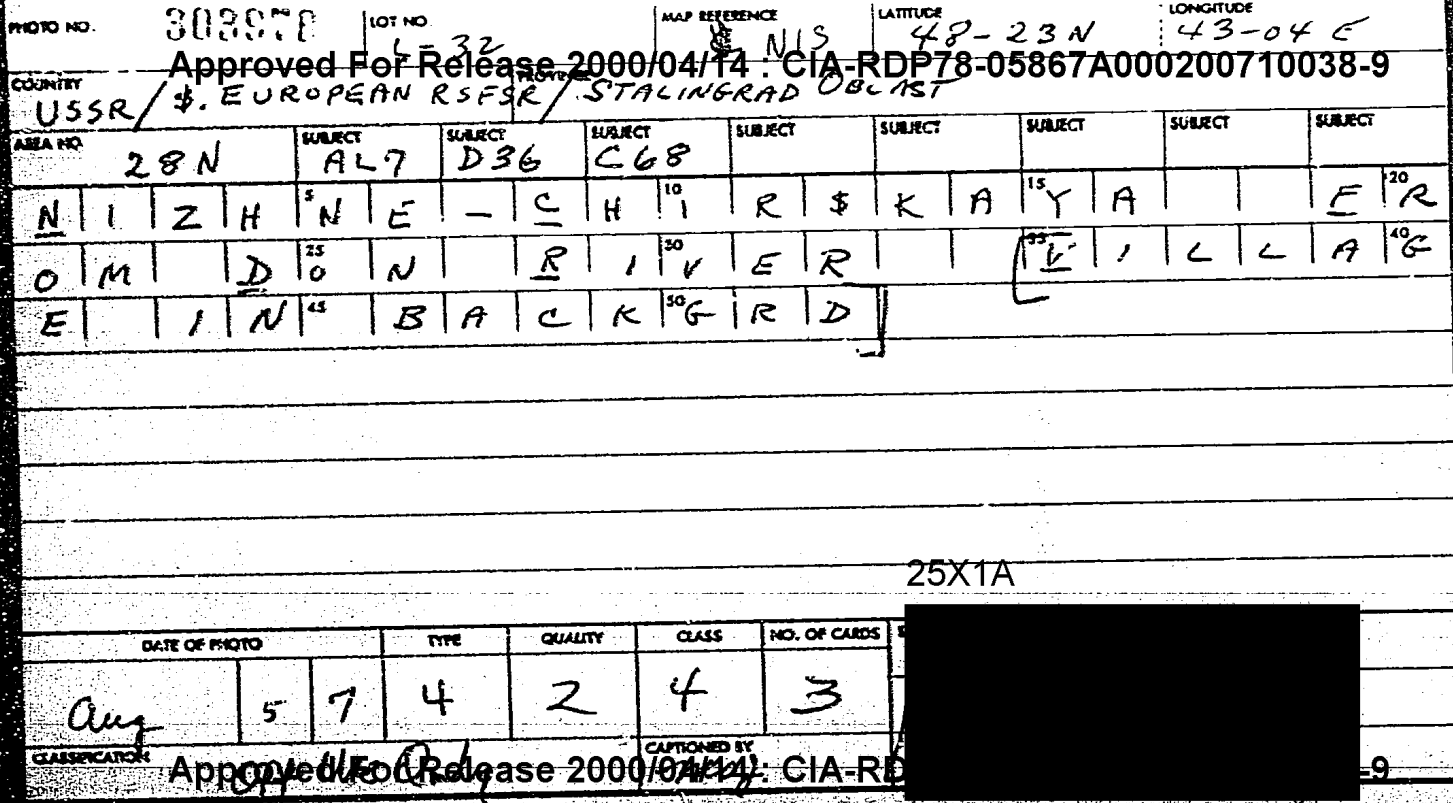 PHOTO NO. LOT NO. L-32 MAP REFERENCE NIS LATITUDE 48-23 N LONGITUDE 43-04 E
Approved For Release 2000/04/14 : CIA-RDP78-05867A000200710038-9
COUNTRY USSR/ $. EUROPEAN RSFSR/ STALINGRAD OBLAST
AREA NO. 28N SUBJECT AL7 SUBJECT D36 SUBJECT C68 SUBJECT SUBJECT SUBJECT SUBJECT SUBJECT
NIZH 5 NE-CH 10 IR$KA 15 YA F 20 R
OM D 25 ON RI 30 VER [ 35 VILLA 40 G
E IN 45 BACK 50 GRD]
25X1A
DATE OF PHOTO TYPE QUALITY CLASS NO. OF CARDS
Aug 57 4 2 4 3
CLASSIFICATION Off Use Only CAPTIONED BY
Approved For Release 2000/04/14 : CIA-RD -9